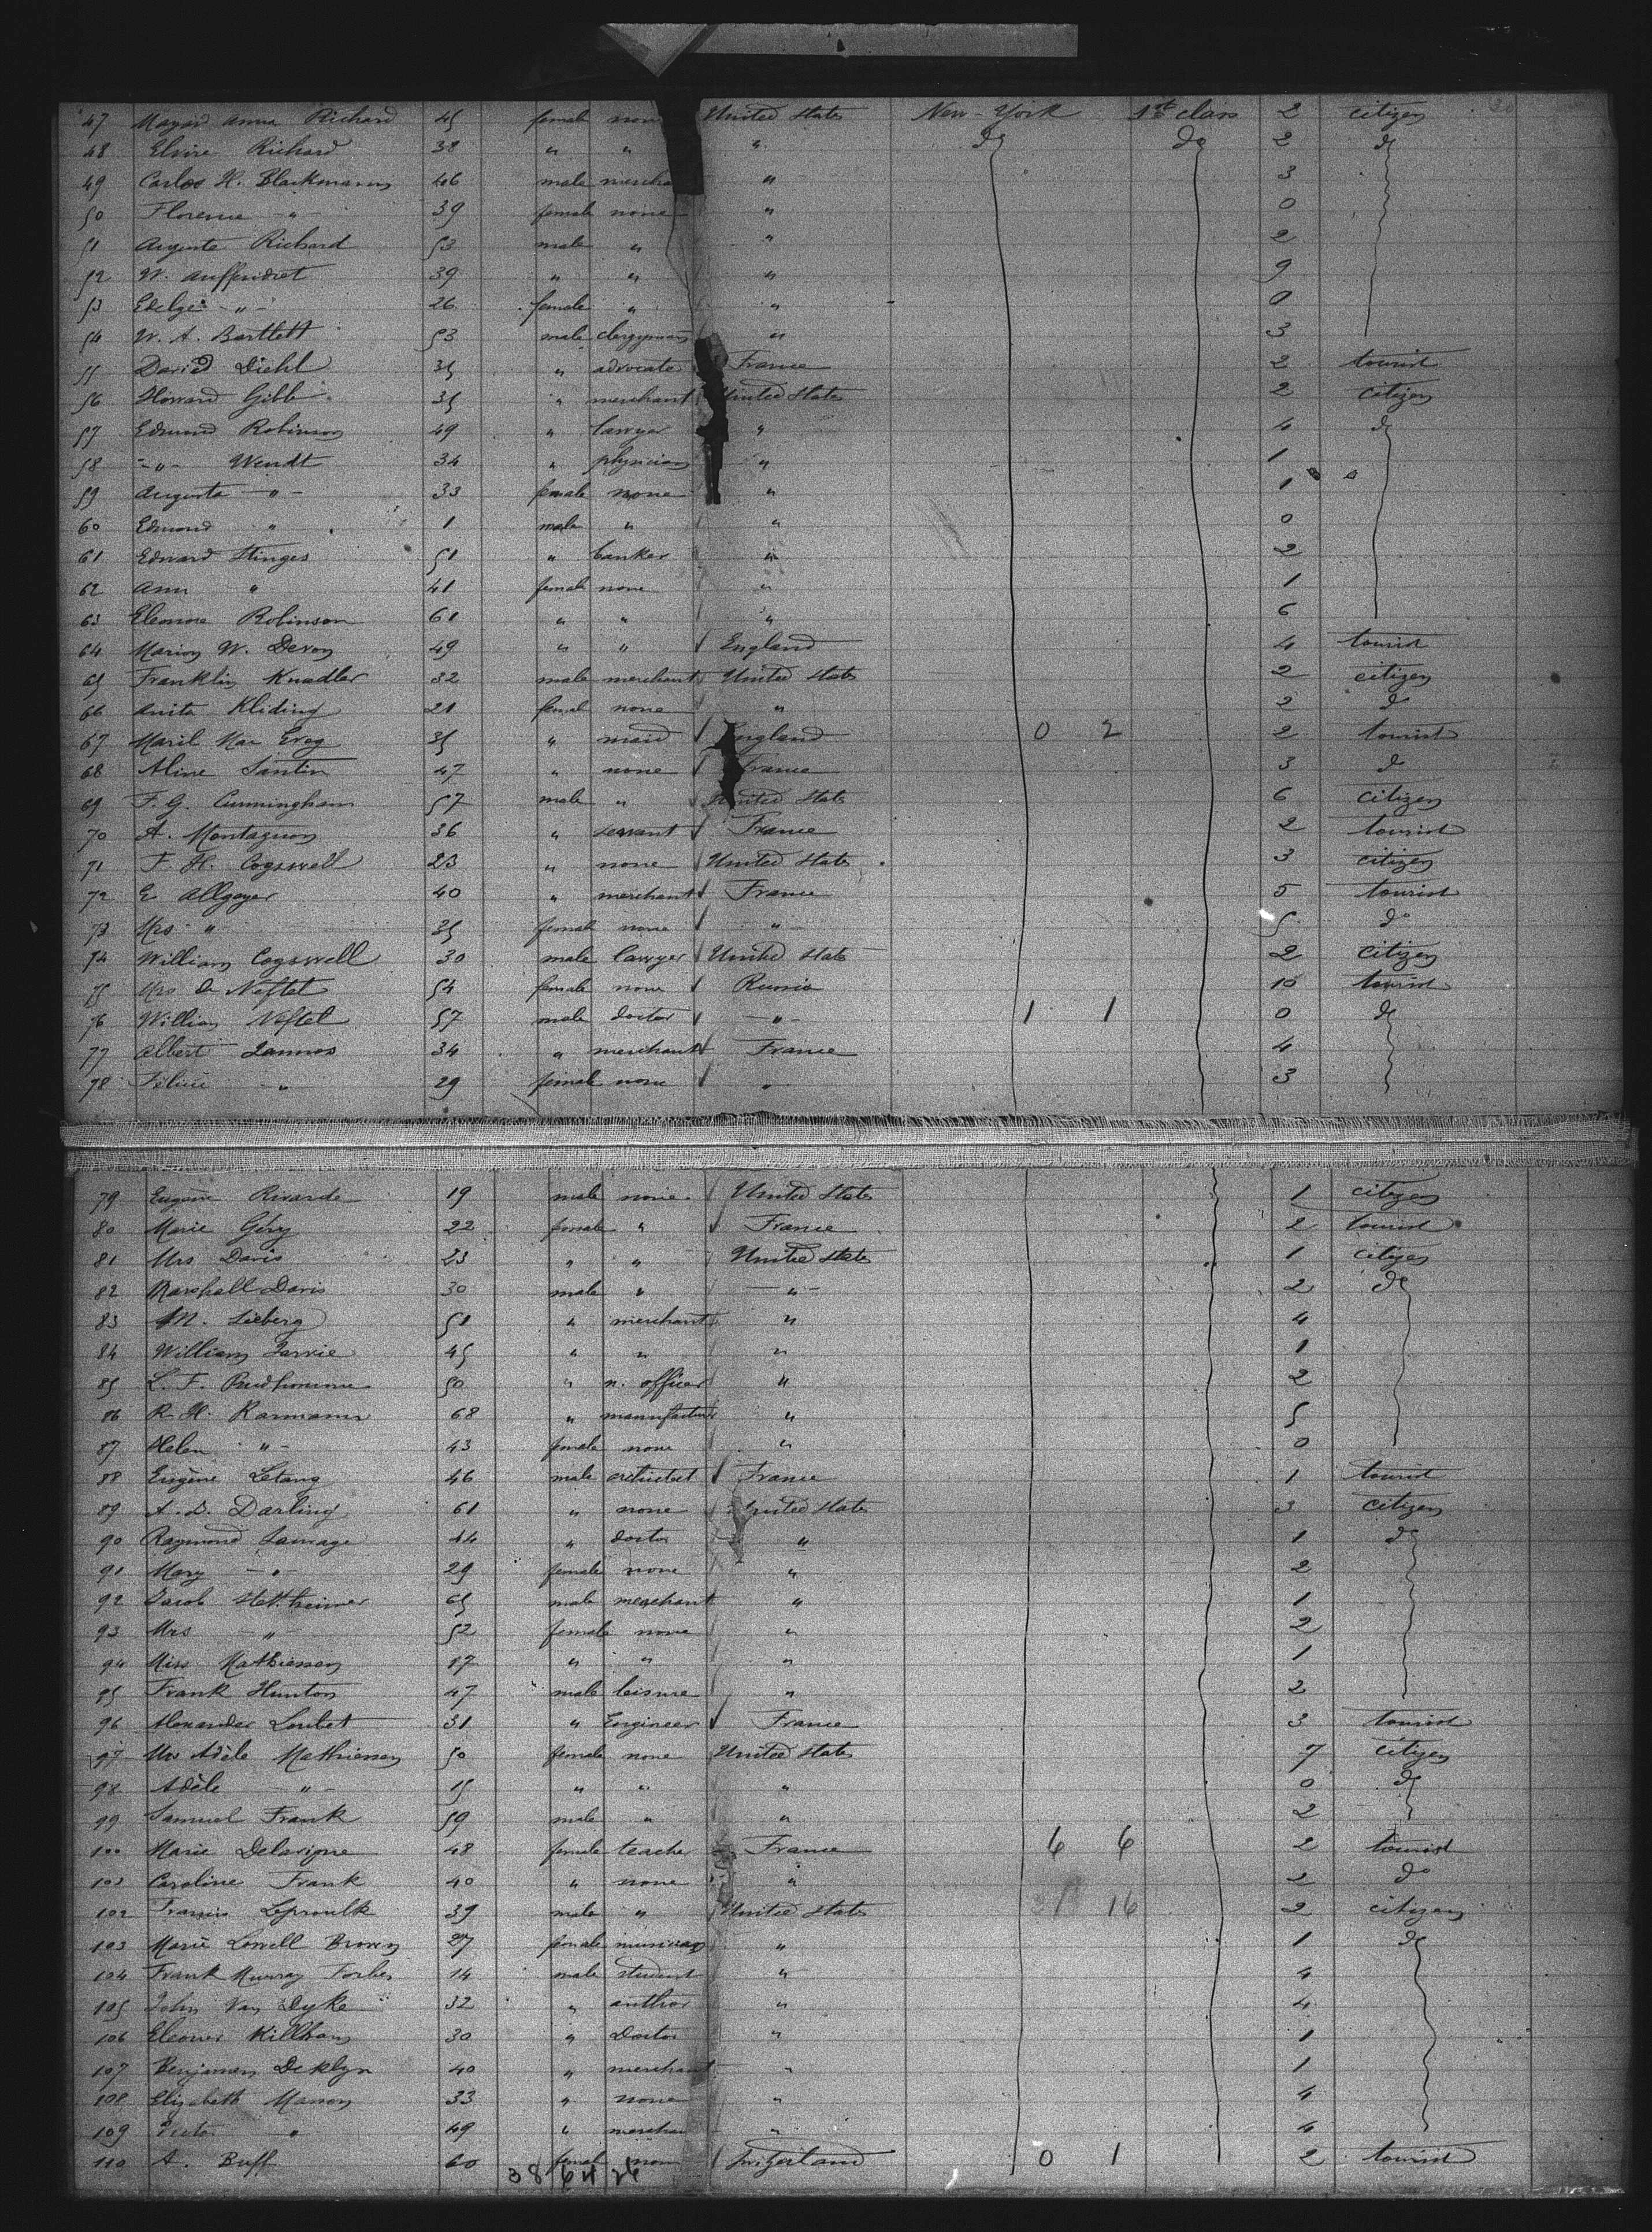 47 Mayard Anna Richard 45 female none United States New-York 1st class 2 citizen
48 Elvire Richard 38 " " " do do 2 do
49 Carlos H. Blackmann 46 male mercha " 3
50 Florence -"- 39 female none " 0
51 Auguste Richard 53 male " " 2
52 W. 39 " " " 9
53 -"- 26 female " " 0
54 W. A. Bartlett 53 male clergyman " 3
55 David Diehl 35 " advocate France 2 tourist
56 Howard Gibb 35 " merchant United States 2 citizen
57 Edmund Robinson 49 " lawyer " 4 do
58 -"- Wendt 34 " physician " 1
59 Augusta -"- 33 female none " 1
60 Edmond " 1 male " " 0
61 Edward Stinges 51 " banker " 2
62 Ann " 41 female none " 1
63 Eleonore Robinson 61 " " " 6
64 Marion W. Devon 49 " " England 4 tourist
65 Franklin Knadler 32 male merchant United States 2 citizen
66 Anita Kliding 21 female none " 2 do
67 35 " maid England 0 2 2 tourist
68 Aline Santin 47 " none France 3 do
69 F. G. Cunningham 57 male " United States 6 citizen
70 A. Montagnon 36 " servant France 2 tourist
71 F. H. Cogswell 23 " none United States 3 citizen
72 E Allgayer 40 " merchant France 5 tourist
73 Mrs " 35 female none " 5 do
74 William Cogswell 30 male lawyer United States 2 citizen
75 Mrs de Neftel 54 female none Russia 10 tourist
76 William Neftel 57 male doctor -"- 1 1 0 do
77 Albert Lannos 34 " merchant France 4
78 -"- 29 female none " 3
79 Eugène Rivarde 19 male none United States 1 citizen
80 Marie Géry 22 female " France 2 tourist
81 Mrs Davis 23 " " United States 1 citizen
82 Marshall Davis 30 male " -"- 2 do
83 M. Lieberg 51 " merchant " 4
84 William Jarvie 45 " " " 1
85 L. F. Prudhomme 50 " n. officer " 2
86 R. H. Karmann 68 " manufactur " 5
87 Helen -"- 43 female none " 0
88 Eugène Letang 46 male France 1 tourist
89 A. D. Darling 61 " none United States 3 citizen
90 Raymond Sauvage 44 " doctor " 1 do
91 Mary -"- 29 female none " 2
92 Jacob Stettheimer 65 male merchant " 1
93 Mrs -"- 52 female none " 2
94 Miss Mathiessen 17 " " " 1
95 Frank Hunton 47 male leisure " 2
96 Alexander Loubet 31 " Engineer France 3 tourist
97 Mrs Adèle Mathiessen 50 female none United States 7 citizen
98 Adèle -"- 15 " " " 0 do
99 Samuel Frank 59 male " " 2
100 Marie Delavigne 48 female teacher France 6 6 2 tourist
101 Caroline Frank 40 " none " 2 do
102 Francis Leproulk 39 male " United States 16 2 citizen
103 Marie Lowell Brown 27 female musician " 1 do
104 Frank Murray Forbes 14 male student " 4
105 John Van Dyke 32 " author " 4
106 Eleoner Killham 30 " Doctor " 1
107 Benjamin Deklyn 40 " merchant " 1
108 Elizabeth Manon 33 " none " 4
109 " 49 " merchan " 4
110 A. Buff 60 female none Switzerland 0 1 2 tourist
38 64 26